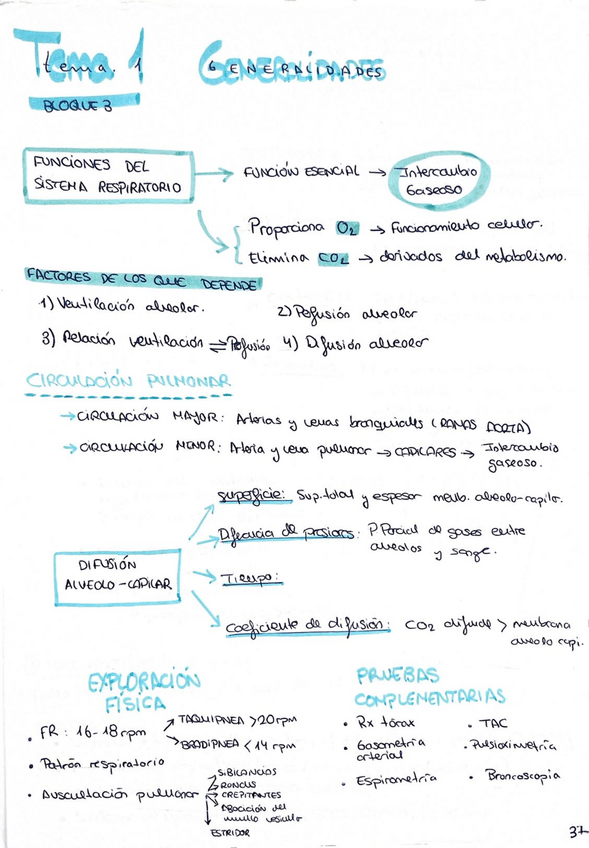 Tema. 1 GENERALIDADES
BLOQUE 3
FUNCIONES DEL
SISTEMA RESPIRATORIO
FUNCIÓN ESENCIAL → Intercambio
Gaseoso
Proporciona O2 → Funcionamiento celular.
Elimina CO2 → derivados del metabolismo.
FACTORES DE LOS QUE DEPENDE
1) Ventilación alveolar.
2) Perfusión alveolar
3) Relación ventilación ⇌ Perfusión 4) Difusión alveolar
CIRCULACIÓN PULMONAR
→ CIRCULACIÓN MAYOR: Arterias y venas bronquiales (RAMAS AORTA)
→ CIRCULACIÓN MENOR: Arteria y vena pulmonar → CAPILARES → Intercambio
gaseoso.
DIFUSIÓN
ALVEOLO-CAPILAR
Superficie: Sup. total y espesor memb. alveolo-capilar.
Diferencia de presiones: P. Parcial de gases entre
alveolos y sangre.
Tiempo:
Coeficiente de difusión: CO2 difunde > membrana
alveolo capi.
EXPLORACIÓN
FÍSICA
• FR: 16-18 rpm
TAQUIPNEA >20 rpm
BRADIPNEA <14 rpm
• Patrón respiratorio
• Auscultación pulmonar
SIBILANCIAS
RONCUS
CREPITANTES
ABOCICIÓN del
murullo vesicular
ESTRIDOR
PRUEBAS
COMPLEMENTARIAS
• Rx tórax
• TAC
• Gasometría
arterial
• Pulsioximetría
• Espirometría
• Broncoscopia
37